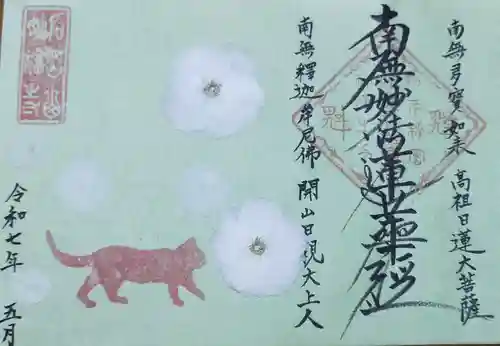 南無多寶如来 高祖日蓮大菩薩
南無妙法蓮華經
南無釋迦牟尼佛 開山日現大上人
令和七年 五月